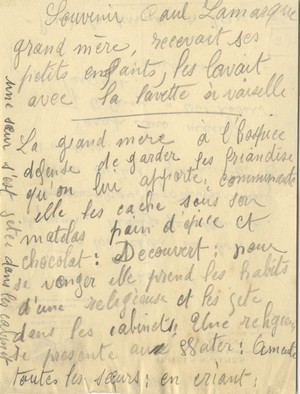 Souvenir Paul Lamasque
grand mère, recevait ses
petits enfants, les lavait
avec la lavette à vaiselle
La grand mère à l'hospice
défense de garder les friandise
qu'on lui apporte, communauté
elle les cache sous son
matelas pain d'épice et
chocolat : Decouvert : pour
se venger elle prend les habits
d'une religieuse et les gete
dans les cabinets. Une religieuse
se presente au Water : Ameute
toutes les sœurs : en criant :
une sœur s'est getée dans les cabinet